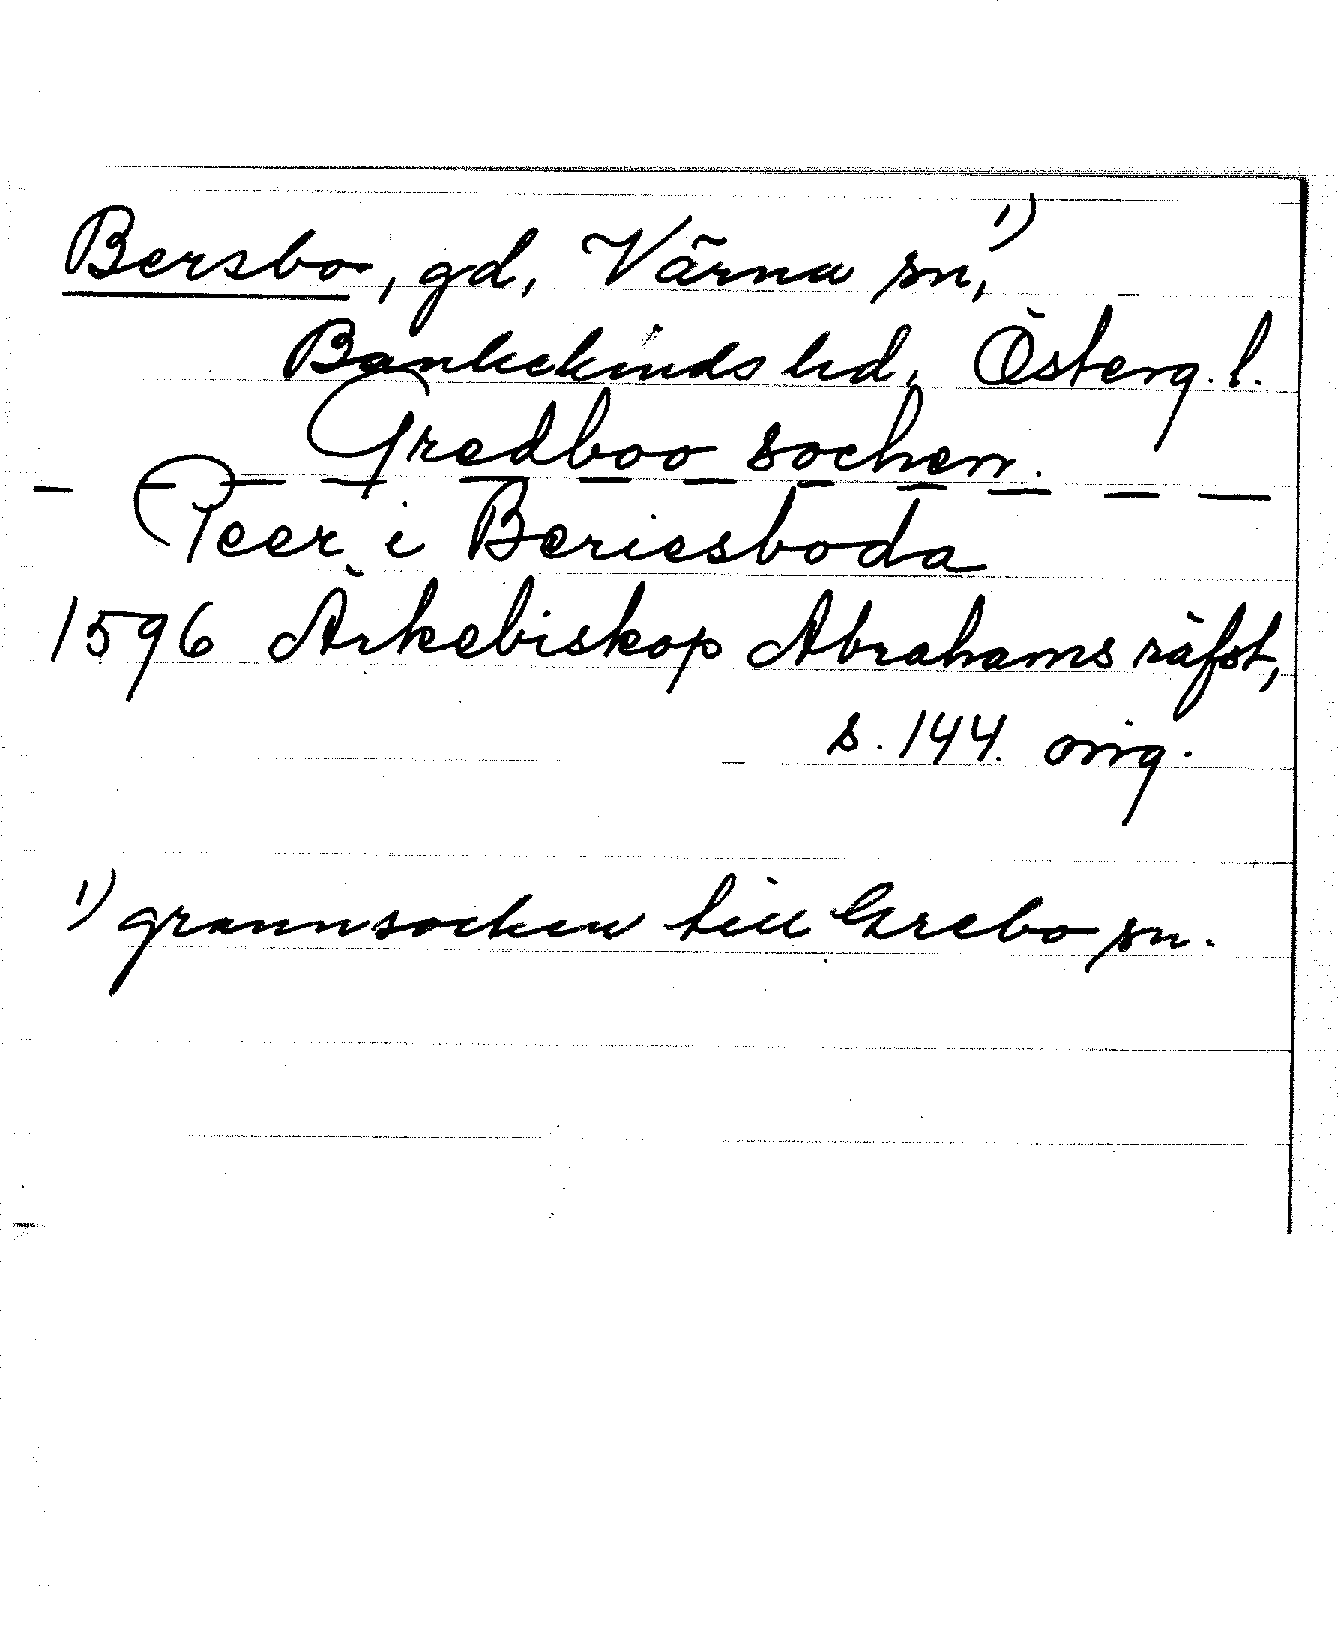 Bersbo, gd, Värna sn, 1)
Bankekinds hd, Österg. l.
Gredboo sochen.
Peer i Beriesboda
1596 Ärkebiskop Abrahams räfst,
s. 144. orig.
1) grannsocken till Grebo sn.